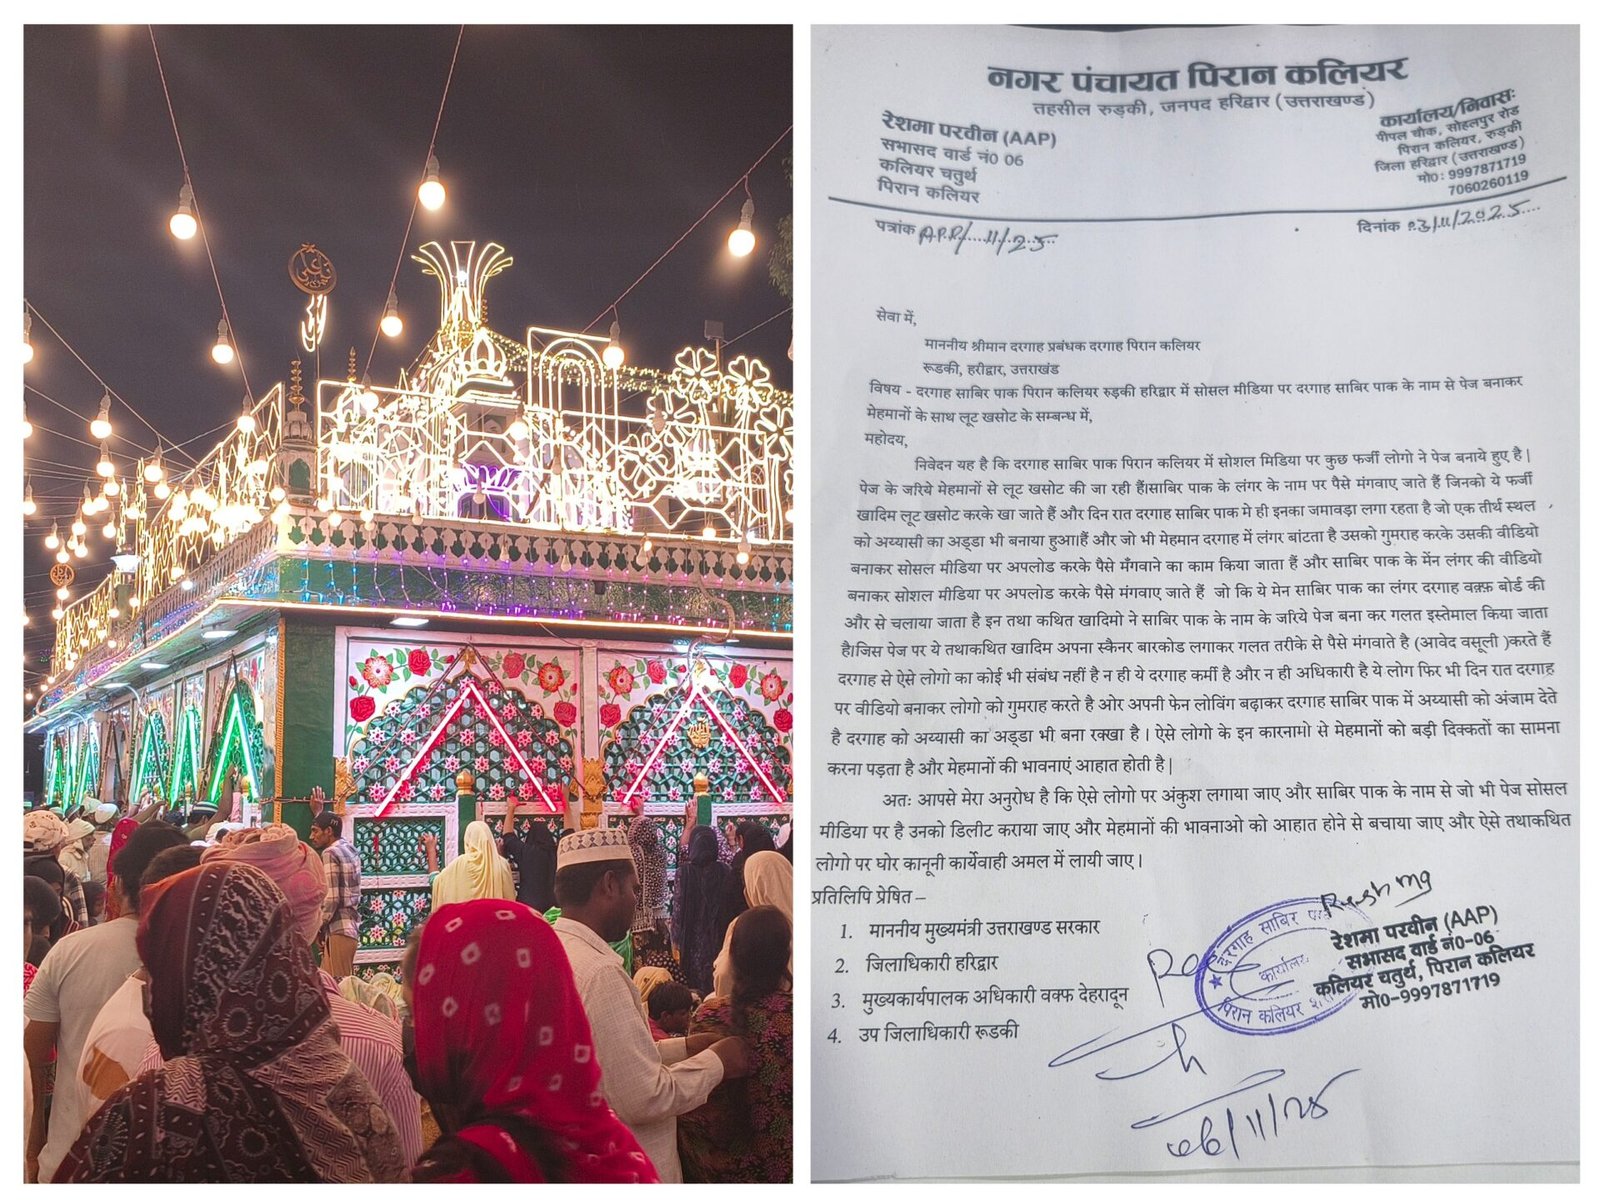 नगर पंचायत पिरान कलियर
तहसील रुड़की, जनपद हरिद्वार (उत्तराखण्ड)
रेशमा परवीन (AAP)
सभासद वार्ड नं0 06
कलियर चतुर्थ
पिरान कलियर
कार्यालय/निवासः
पीपल चौक, सोहलपुर रोड
पिरान कलियर, रुड़की
जिला हरिद्वार (उत्तराखण्ड)
मो0: 9997871719
7060260119
पत्रांक A.P.P/....11/25..
दिनांक 03/11/2025....
सेवा में,
माननीय श्रीमान दरगाह प्रबंधक दरगाह पिरान कलियर
रूडकी, हरीद्वार, उत्तराखंड
विषय - दरगाह साबिर पाक पिरान कलियर रुड़की हरिद्वार में सोसल मीडिया पर दरगाह साबिर पाक के नाम से पेज बनाकर
मेहमानों के साथ लूट खसोट के सम्बन्ध में,
महोदय,
निवेदन यह है कि दरगाह साबिर पाक पिरान कलियर में सोशल मिडिया पर कुछ फर्जी लोगो ने पेज बनाये हुए है |
पेज के जरिये मेहमानों से लूट खसोट की जा रही हैं।साबिर पाक के लंगर के नाम पर पैसे मंगवाए जाते हैं जिनको ये फर्जी
खादिम लूट खसोट करके खा जाते हैं और दिन रात दरगाह साबिर पाक मे ही इनका जमावड़ा लगा रहता है जो एक तीर्थ स्थल
को अय्यासी का अड्डा भी बनाया हुआ।हैं और जो भी मेहमान दरगाह में लंगर बांटता है उसको गुमराह करके उसकी वीडियो
बनाकर सोसल मीडिया पर अपलोड करके पैसे मँगवाने का काम किया जाता हैं और साबिर पाक के मेंन लंगर की वीडियो
बनाकर सोशल मीडिया पर अपलोड करके पैसे मंगवाए जाते हैं जो कि ये मेन साबिर पाक का लंगर दरगाह वक़्फ़ बोर्ड की
और से चलाया जाता है इन तथा कथित खादिमो ने साबिर पाक के नाम के जरिये पेज बना कर गलत इस्तेमाल किया जाता
है।जिस पेज पर ये तथाकथित खादिम अपना स्कैनर बारकोड लगाकर गलत तरीके से पैसे मंगवाते है (आवेद वसूली )करते हैं
दरगाह से ऐसे लोगो का कोई भी संबंध नहीं है न ही ये दरगाह कर्मी है और न ही अधिकारी है ये लोग फिर भी दिन रात दरगाह
पर वीडियो बनाकर लोगो को गुमराह करते है ओर अपनी फेन लोविंग बढ़ाकर दरगाह साबिर पाक में अय्यासी को अंजाम देते
है दरगाह को अय्यासी का अड्डा भी बना रक्खा है । ऐसे लोगो के इन कारनामो से मेहमानों को बड़ी दिक्कतों का सामना
करना पड़ता है और मेहमानों की भावनाएं आहात होती है |
अतः आपसे मेरा अनुरोध है कि ऐसे लोगो पर अंकुश लगाया जाए और साबिर पाक के नाम से जो भी पेज सोसल
मीडिया पर है उनको डिलीट कराया जाए और मेहमानों की भावनाओ को आहात होने से बचाया जाए और ऐसे तथाकथित
लोगो पर घोर कानूनी कार्येवाही अमल में लायी जाए ।
प्रतिलिपि प्रेषित –
1. माननीय मुख्यमंत्री उत्तराखण्ड सरकार
2. जिलाधिकारी हरिद्वार
3. मुख्यकार्यपालक अधिकारी वक्फ देहरादून
4. उप जिलाधिकारी रूडकी
Reshma
रेशमा परवीन (AAP)
सभासद वार्ड नं0-06
कलियर चतुर्थ, पिरान कलियर
मो0-9997871719
दरगाह साबिर
कार्यालय
पिरान कलियर
06/11/25